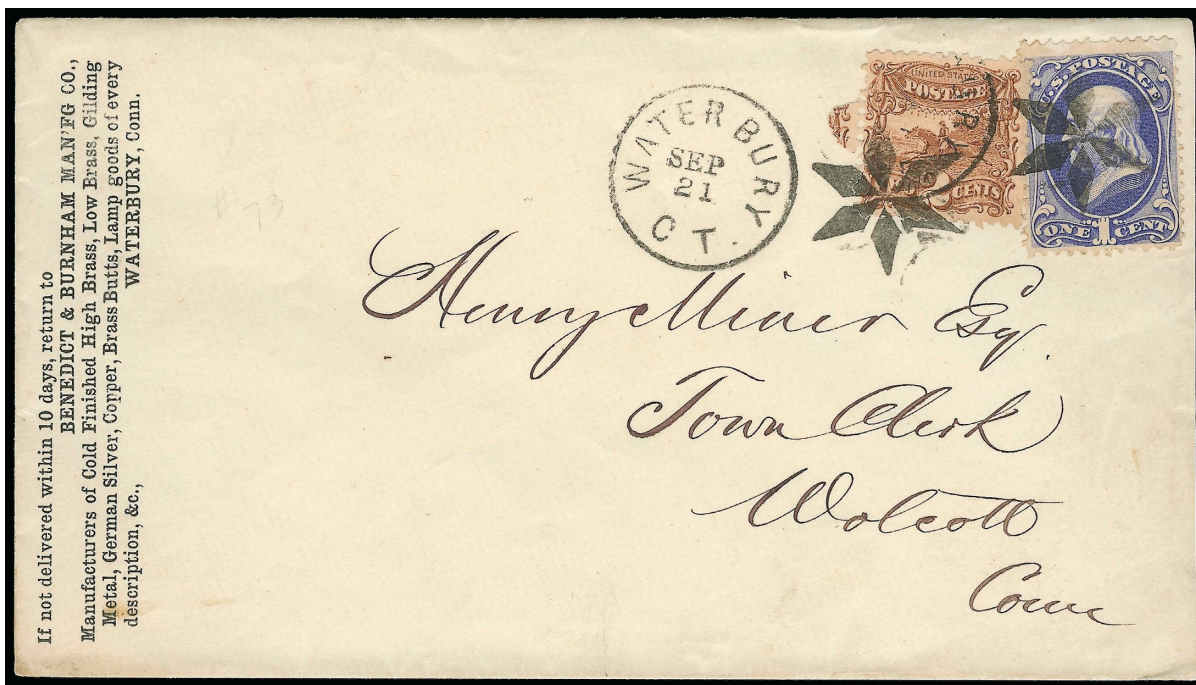 If not delivered within 10 days, return to
BENEDICT & BURNHAM MAN'FG CO.,
Manufacturers of Cold Finished High Brass, Low Brass, Gilding
Metal, German Silver, Copper, Brass Butts, Lamp goods of every
description, &c., WATERBURY, Conn.
#73
WATERBURY
SEP
21
CT.
UNITED STATES
POSTAGE
CENTS
U.S. POSTAGE
ONE 1 CENT
Henry Miner Esq.
Town Clerk
Wolcott
Conn